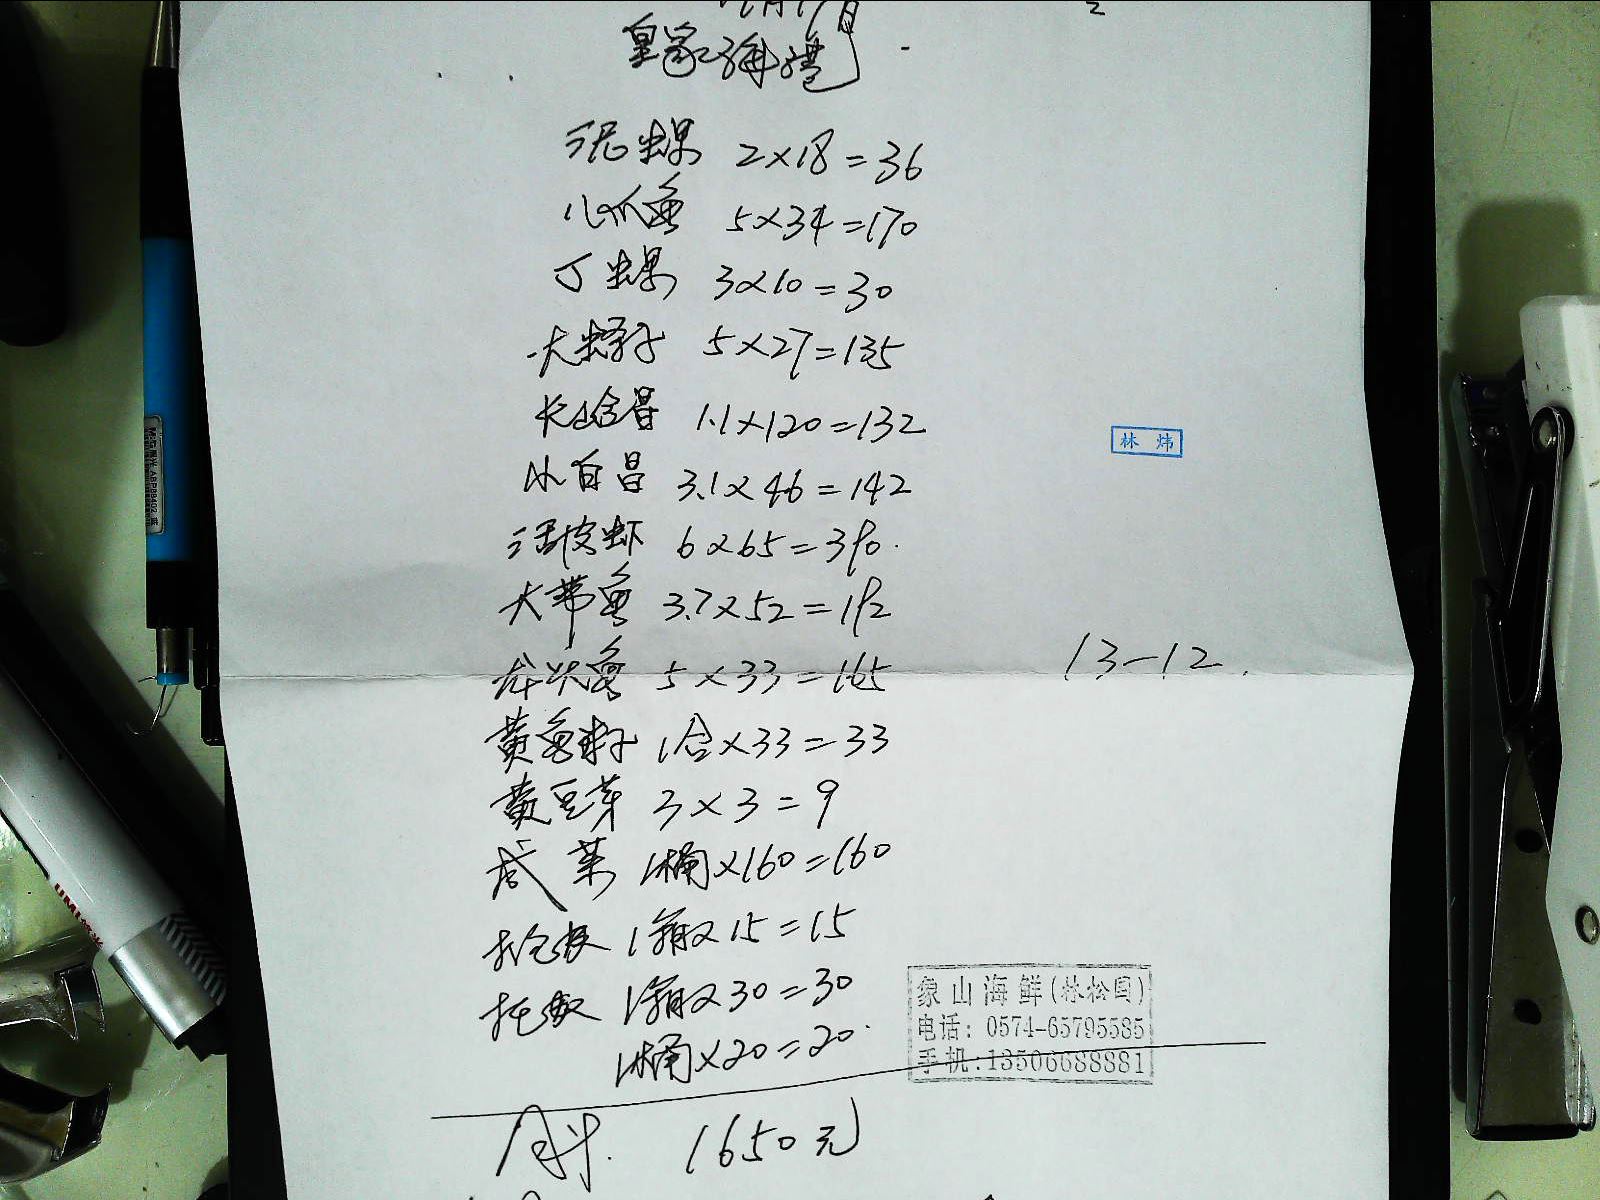 皇家海港
泥螺 2×18=36
八爪鱼 5×34=170
丁螺 3×10=30
大蛏子 5×27=135
长山仓昌 1.1×120=132
小白昌 3.1×46=142
活皮虾 6×65=390
大带鱼 3.7×52=192
龙头鱼 5×33=165
黄鱼籽 1合×33=33
黄豆芽 3×3=9
咸菜 1桶×160=160
1箱×15=15
1箱×30=30
1桶×20=20
合计. 1650元
林炜
13-12.
象山海鲜(林松国)
电话: 0574-65795585
手机:13506688881